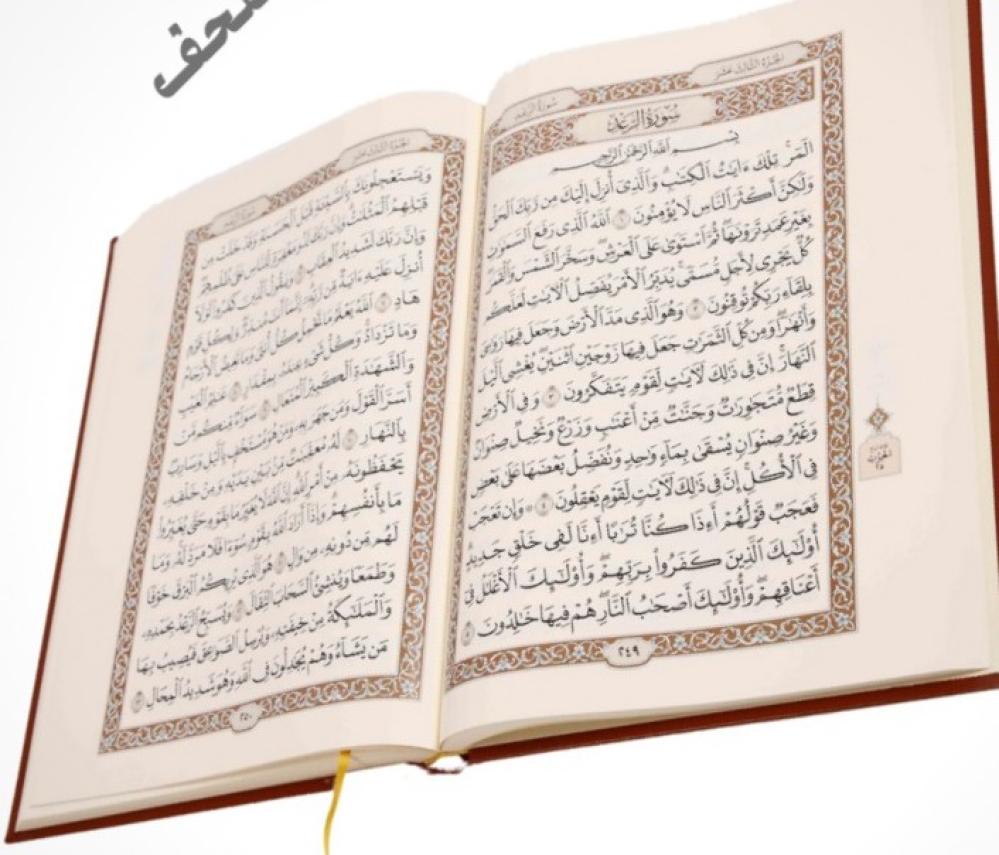 صحف
الجُزْءُ الثَّالِثَ عَشَرَ
سُورَةُ الرَّعْدِ
سُورَةُ الرَّعْدِ
بِسْمِ اللَّهِ الرَّحْمَٰنِ الرَّحِيمِ
الٓمٓر تِلْكَ ءَايَٰتُ الْكِتَٰبِ وَالَّذِىٓ أُنزِلَ إِلَيْكَ مِن رَّبِّكَ الْحَقُّ
وَلَٰكِنَّ أَكْثَرَ النَّاسِ لَا يُؤْمِنُونَ ١ اللَّهُ الَّذِى رَفَعَ السَّمَٰوَٰتِ
بِغَيْرِ عَمَدٍ تَرَوْنَهَا ثُمَّ اسْتَوَىٰ عَلَى الْعَرْشِ وَسَخَّرَ الشَّمْسَ وَالْقَمَرَ
كُلٌّ يَجْرِى لِأَجَلٍ مُّسَمًّى يُدَبِّرُ الْأَمْرَ يُفَصِّلُ الْءَايَٰتِ لَعَلَّكُم
بِلِقَآءِ رَبِّكُمْ تُوقِنُونَ ٢ وَهُوَ الَّذِى مَدَّ الْأَرْضَ وَجَعَلَ فِيهَا رَوَٰسِىَ
وَأَنْهَٰرًا وَمِن كُلِّ الثَّمَرَٰتِ جَعَلَ فِيهَا زَوْجَيْنِ اثْنَيْنِ يُغْشِى الَّيْلَ
النَّهَارَ إِنَّ فِى ذَٰلِكَ لَءَايَٰتٍ لِّقَوْمٍ يَتَفَكَّرُونَ ٣ وَفِى الْأَرْضِ
قِطَعٌ مُّتَجَٰوِرَٰتٌ وَجَنَّٰتٌ مِّنْ أَعْنَٰبٍ وَزَرْعٌ وَنَخِيلٌ صِنْوَانٌ
وَغَيْرُ صِنْوَانٍ يُسْقَىٰ بِمَآءٍ وَٰحِدٍ وَنُفَضِّلُ بَعْضَهَا عَلَىٰ بَعْضٍ
فِى الْأُكُلِ إِنَّ فِى ذَٰلِكَ لَءَايَٰتٍ لِّقَوْمٍ يَعْقِلُونَ ٤ وَإِن تَعْجَبْ
فَعَجَبٌ قَوْلُهُمْ أَءِذَا كُنَّا تُرَٰبًا أَءِنَّا لَفِى خَلْقٍ جَدِيدٍ
أُو۟لَٰٓئِكَ الَّذِينَ كَفَرُوا۟ بِرَبِّهِمْ وَأُو۟لَٰٓئِكَ الْأَغْلَٰلُ فِىٓ
أَعْنَاقِهِمْ وَأُو۟لَٰٓئِكَ أَصْحَٰبُ النَّارِ هُمْ فِيهَا خَٰلِدُونَ ٥
٢٤٩
الحِزْبُ ٢٥
الجُزْءُ الثَّالِثَ عَشَرَ
سُورَةُ الرَّعْدِ
وَيَسْتَعْجِلُونَكَ بِالسَّيِّئَةِ قَبْلَ الْحَسَنَةِ وَقَدْ خَلَتْ مِن
قَبْلِهِمُ الْمَثُلَٰتُ وَإِنَّ رَبَّكَ لَذُو مَغْفِرَةٍ لِّلنَّاسِ عَلَىٰ ظُلْمِهِمْ
وَإِنَّ رَبَّكَ لَشَدِيدُ الْعِقَابِ ٦ وَيَقُولُ الَّذِينَ كَفَرُوا۟ لَوْلَآ
أُنزِلَ عَلَيْهِ ءَايَةٌ مِّن رَّبِّهِ إِنَّمَآ أَنتَ مُنذِرٌ وَلِكُلِّ قَوْمٍ
هَادٍ ٧ اللَّهُ يَعْلَمُ مَا تَحْمِلُ كُلُّ أُنثَىٰ وَمَا تَغِيضُ الْأَرْحَامُ
وَمَا تَزْدَادُ وَكُلُّ شَىْءٍ عِندَهُ بِمِقْدَارٍ ٨ عَٰلِمُ الْغَيْبِ
وَالشَّهَٰدَةِ الْكَبِيرُ الْمُتَعَالِ ٩ سَوَآءٌ مِّنكُم مَّنْ
أَسَرَّ الْقَوْلَ وَمَن جَهَرَ بِهِ وَمَنْ هُوَ مُسْتَخْفٍ بِالَّيْلِ وَسَارِبٌ
بِالنَّهَارِ ١٠ لَهُ مُعَقِّبَٰتٌ مِّن بَيْنِ يَدَيْهِ وَمِنْ خَلْفِهِ
يَحْفَظُونَهُ مِنْ أَمْرِ اللَّهِ إِنَّ اللَّهَ لَا يُغَيِّرُ مَا بِقَوْمٍ حَتَّىٰ يُغَيِّرُوا۟
مَا بِأَنفُسِهِمْ وَإِذَآ أَرَادَ اللَّهُ بِقَوْمٍ سُوٓءًا فَلَا مَرَدَّ لَهُ وَمَا
لَهُم مِّن دُونِهِ مِن وَالٍ ١١ هُوَ الَّذِى يُرِيكُمُ الْبَرْقَ خَوْفًا
وَطَمَعًا وَيُنشِئُ السَّحَابَ الثِّقَالَ ١٢ وَيُسَبِّحُ الرَّعْدُ بِحَمْدِهِ
وَالْمَلَٰٓئِكَةُ مِنْ خِيفَتِهِ وَيُرْسِلُ الصَّوَٰعِقَ فَيُصِيبُ بِهَا
مَن يَشَآءُ وَهُمْ يُجَٰدِلُونَ فِى اللَّهِ وَهُوَ شَدِيدُ الْمِحَالِ ١٣
٢٥٠